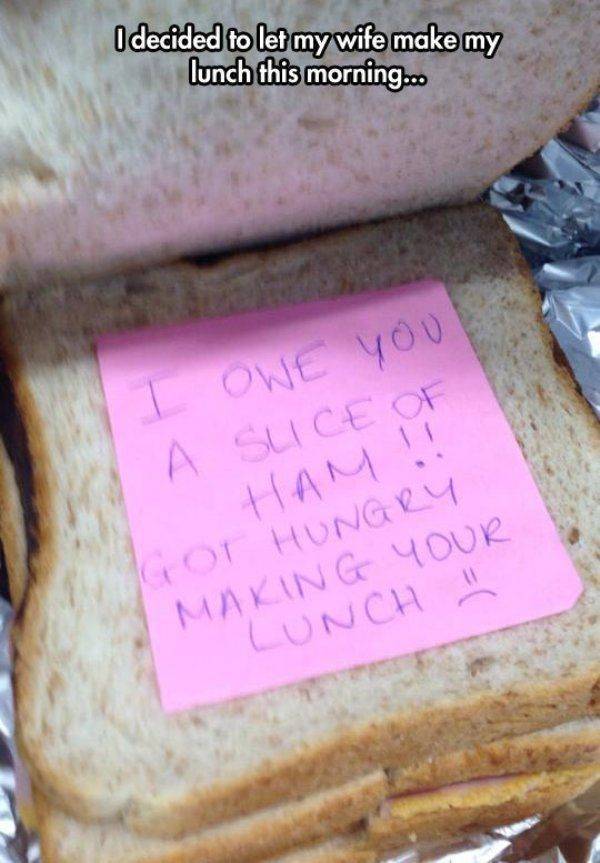 I decided to let my wife make my
lunch this morning...
I OWE YOU
A SLICE OF
HAM !!
GOT HUNGRY
MAKING YOUR
LUNCH :(